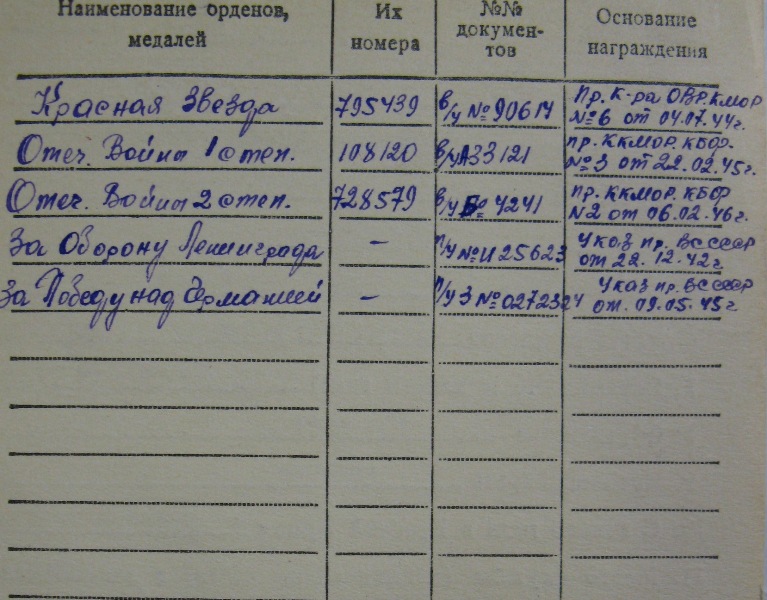 Наименование орденов,
медалей
Их
номера
№№
докумен-
тов
Основание
награждения
Красная Звезда
795439
в/у № 90614
Пр. К-ра ОВР. КМОР
№ 6 от 04.07.44г.
Отеч. Войны 1 степ.
108120
в/у А33121
пр. ККМОР. КБФ.
№ 3 от 22.02.45г.
Отеч. Войны 2 степ.
728579
в/у № 4241
пр. ККМОР. КБФ
N2 от 06.02.46г.
За Оборону Ленинграда
–
п/у № И 25623
Указ пр. ВС СССР
от 22.12.42г
За Победу над Германией
–
п/у З № 0272324
Указ пр. ВС СССР
от. 09.05.45г